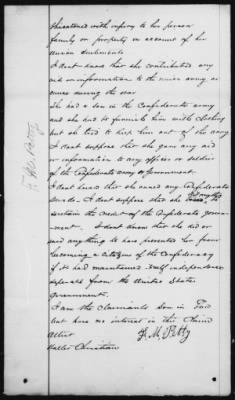 threatened with injury to her person
family or property on account of her
union sentiments
I dont know that she contributed any
aid or information to the union army or
cause during the war
She had a son in the Confederate army
and she had to furnish him with clothing
but she tried to keep him out of the army
I dont suppose that she gave any aid
or information to any officer or soldier
of the Confederate army or government.
I dont know that she owned any Confederate
bonds. I dont suppose that she did any thing to
sustain the credit of the Confederate govern-
ment. I dont know that she did or
said anything to have prevented her from
becoming a citizen of the Confederacy
if it had maintained itself independence
separate from the United States
Government.
I am the claimants son in law
but have no interest in this claim
Attest
F. M. Petty
Christian
F. M. Petty